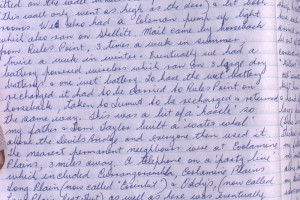 only went as high as the door) & lit both
rooms. We also had a Coleman pump up light
which also ran on Shellite. Mail came by horseback
from Rules Point, 3 times a week in summer
twice a week in winter. Eventually we had a
battery powered wireless which ran on 3 large dry
battery & one wet battery. To have the wet battery
recharged it had to be carried to Rules Point on
horseback, taken to Tumut to be recharged & returned
the same way. This was a bit of a hassle so
my father & Tom Taylor built a water wheel
down the Devils and then used it.
The nearest permanent neighbours were at Coolamine
Plains, 3 miles away. A telephone on a party line
which included Currangorambla, Coolamine Plains
Long Plain (now called "Ezenbul") & Eddy's, (now called
as well as here was eventually